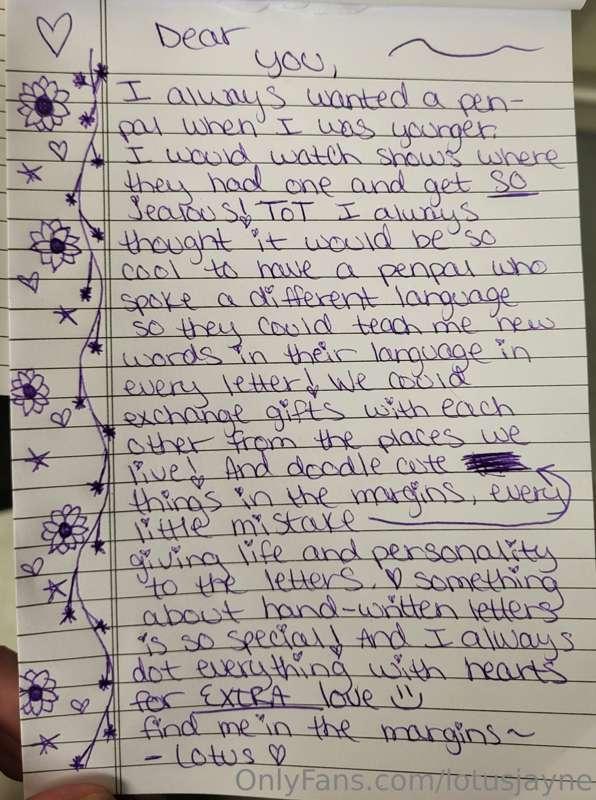 Dear
You,
I always wanted a pen-
pal when I was younger.
I would watch shows where
they had one and get SO
jealous! ToT I always
thought it would be so
cool to have a penpal who
spoke a different language
so they could teach me new
words in their language in
every letter! We could
exchange gifts with each
other from the places we
live! And doodle cute
things in the margins, every
little mistake
giving life and personality
to the letters. ♡ something
about hand-written letters
is so special! And I always
dot everything with hearts
for EXTRA love :)
find me in the margins~
- Lotus ♡
OnlyFans.com/lotusjayne